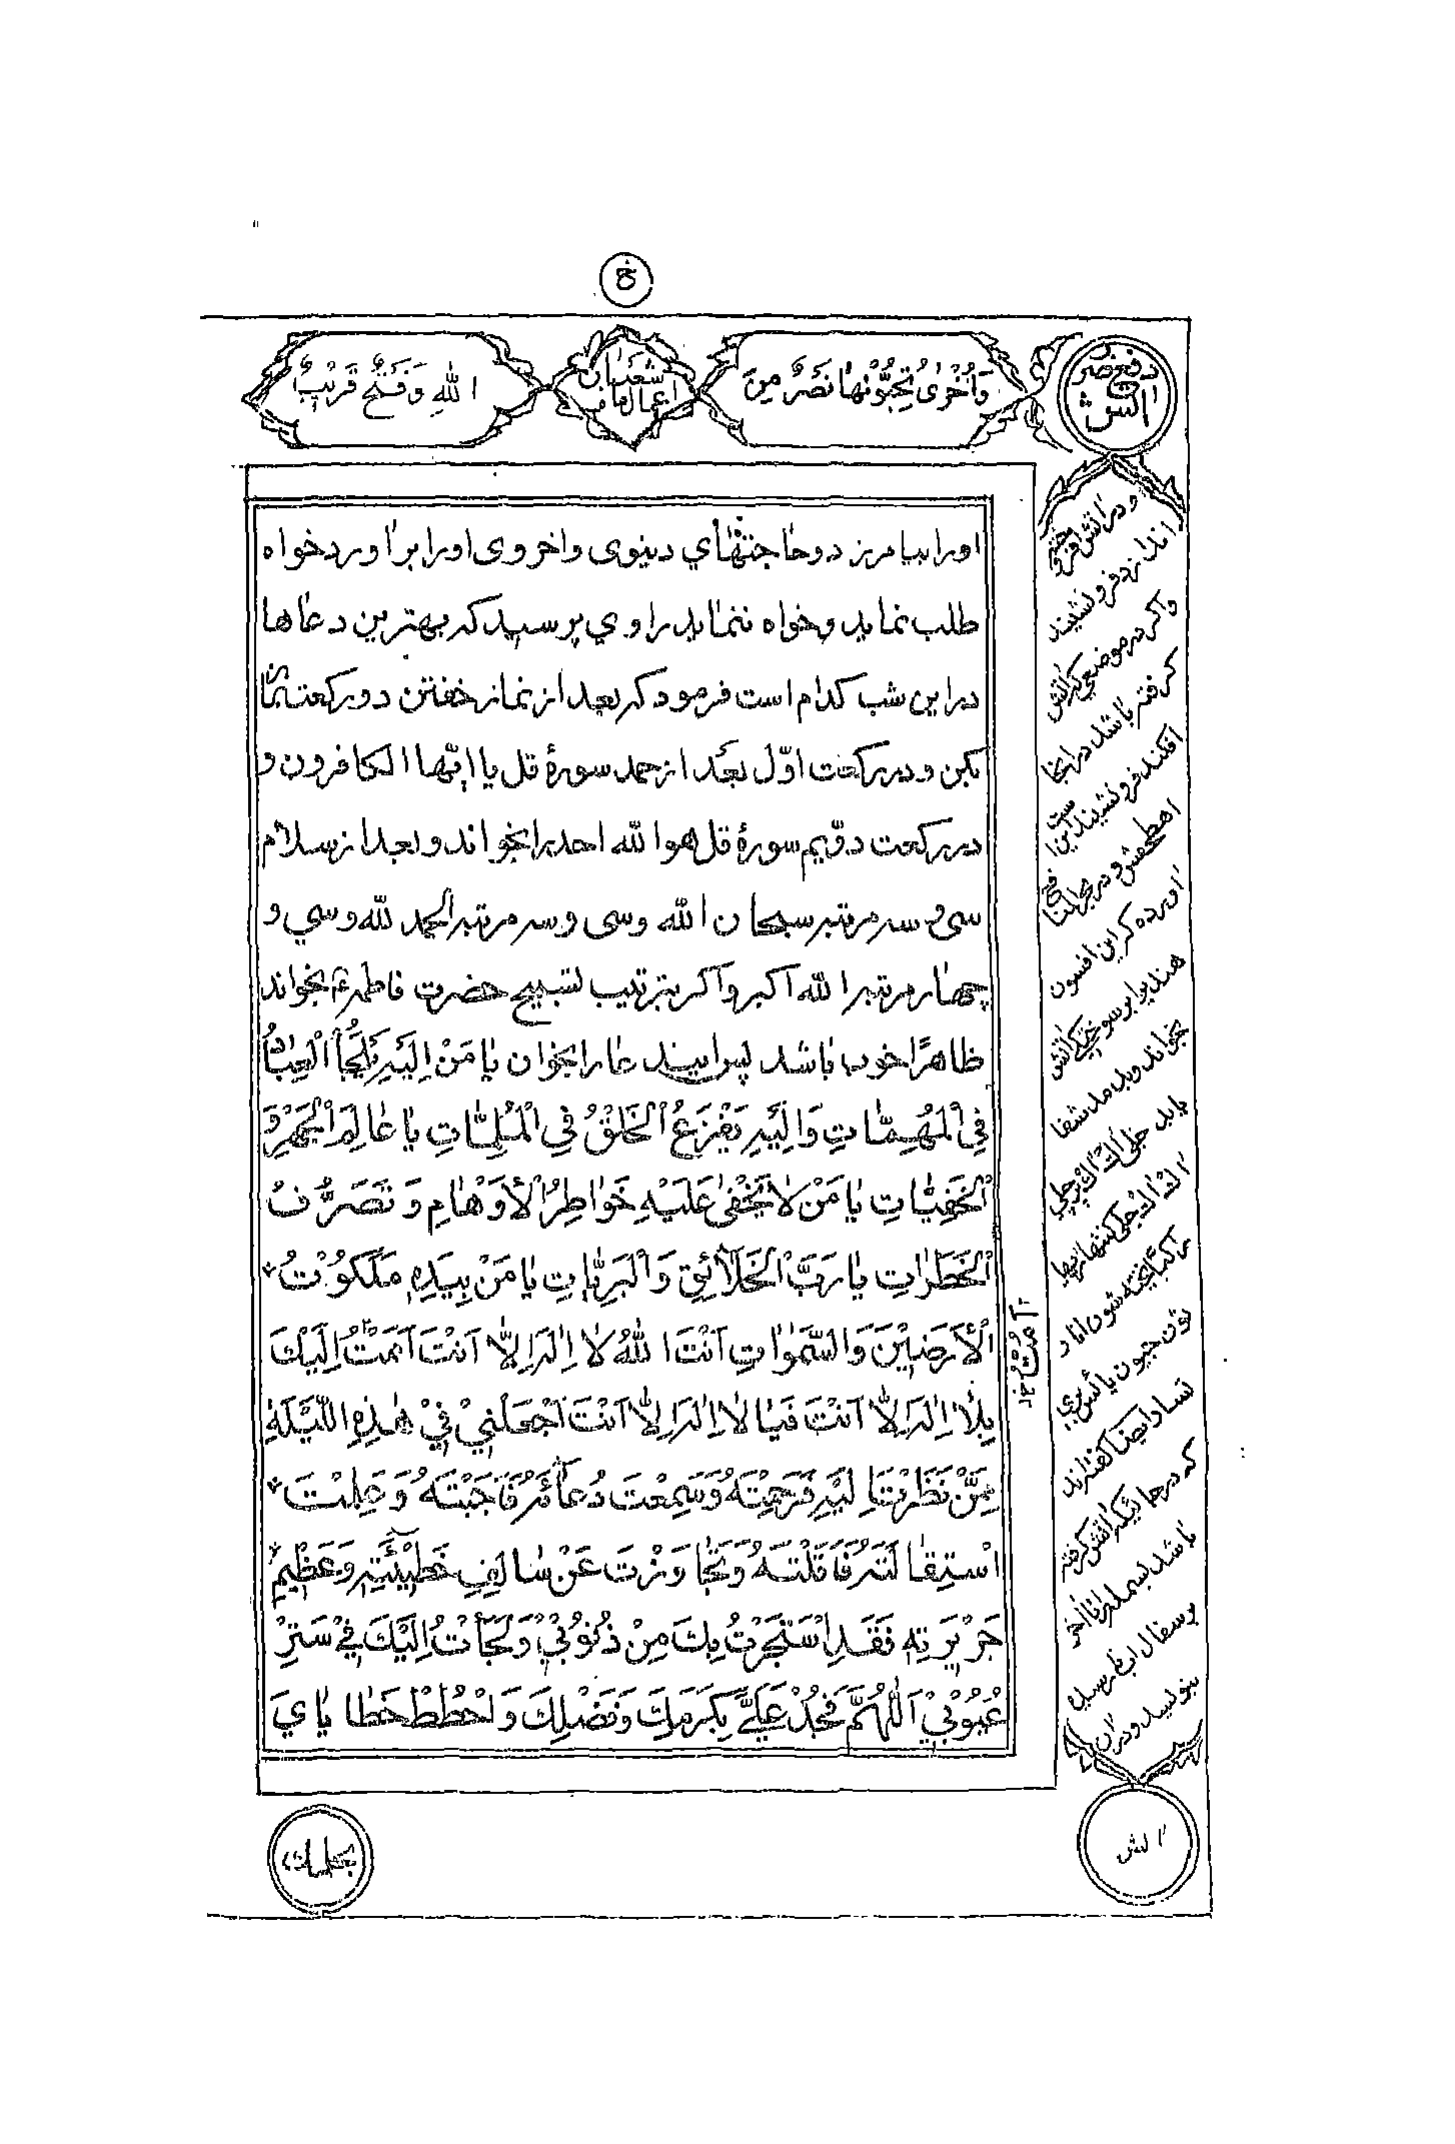 8
دفع ضرر
آتش
وَاُخْرٰی تُحِبُّوْنَهٰا نَصْرٌ مِنَ
اعمال ماه شعبان
اللهِ وَفَتْحٌ قَرِیْبٌ
اورا بیامرزد و حاجتهٰای دینوی و اخروی اورا براورد خواه
طلب نماید و خواه ننماید راوی پرسید که بهترین دعاها
در این شب کدام است فرمود که بعد از نماز خفتن دو رکعت نماز
بکن و در رکعت اوّل بعد از حمد سورهٔ قل یا ایّها الکافرون و
در رکعت دوّیم سورهٔ قل هوا لله احد را بخواند و بعد از سلام
سی و سه مرتبه سبحان الله و سی و سه مرتبه الحمد لله و سی و
چهار مرتبه الله اکبر و اگر بترتیب تسبیح حضرت فاطمه ع بخواند
ظاهرًا خوب باشد پس این دعا را بخوان یٰا مَنْ اِلَیْهِ مَلْجَأُ الْعِبٰادِ
فِی الْمُهِمّٰاتِ وَاِلَیْهِ یَفْزَعُ الْخَلْقُ فِی الْمُلِمّٰاتِ یٰا عٰالِمَ الْجَهْرِ وَ
الْخَفِیّٰاتِ یٰا مَنْ لٰا یَخْفٰی عَلَیْهِ خَوٰاطِرُ الْاَوْهٰامِ وَ تَصَرُّفُ
الْخَطَرٰاتِ یٰا رَبَّ الْخَلٰائِقِ وَالْبَرِیّٰاتِ یٰا مَنْ بِیَدِهِ مَلَکُوْتُ
الْاَرَضِیْنَ وَالسَّمٰوٰاتِ اَنْتَ اللهُ لٰا اِلٰهَ اِلّٰا اَنْتَ اَمُتُّ اِلَیْکَ
بِلٰا اِلٰهَ اِلّٰا اَنْتَ فَیٰا لٰا اِلٰهَ اِلّٰا اَنْتَ اجْعَلْنِیْ فِیْ هٰذِهِ اللَّیْلَةِ
مِمَّنْ نَظَرْتَ اِلَیْهِ فَرَحِمْتَهُ وَسَمِعْتَ دُعٰائَهُ فَاَجَبْتَهُ وَ عَلِمْتَ
اسْتِقٰالَتَهُ فَاَقَلْتَهُ وَ تَجٰاوَزْتَ عَنْ سٰالِفِ خَطِیْئَتِهِ وَ عَظِیْمِ
جَرِیْرَتِهِ فَقَدِ اسْتَجَرْتُ بِکَ مِنْ ذُنُوْبِیْ وَ لَجَأْتُ اِلَیْکَ فِیْ سَتْرِ
عُیُوْبِیْ اَللّٰهُمَّ فَجُدْ عَلَیَّ بِکَرَمِکَ وَ فَضْلِکَ وَ احْطُطْ خَطٰایٰایَ
و در آتش افروخته
اندازد فرو نشیند
واگر در موضعی که آتش
گرفته باشد در انجا
افکند فرو نشیند این است
اهطحفش و در بحر المنافع
آورده که این افسون
هندی برابر سوختگی آتش
بخواند و بدمد شفا
یابد
را
که در جائیکه آتش گرفته
باشد بسم الله تا آخر
بر سفال اب نارسیده
بنویسد و در آن
آتش
بحلمك